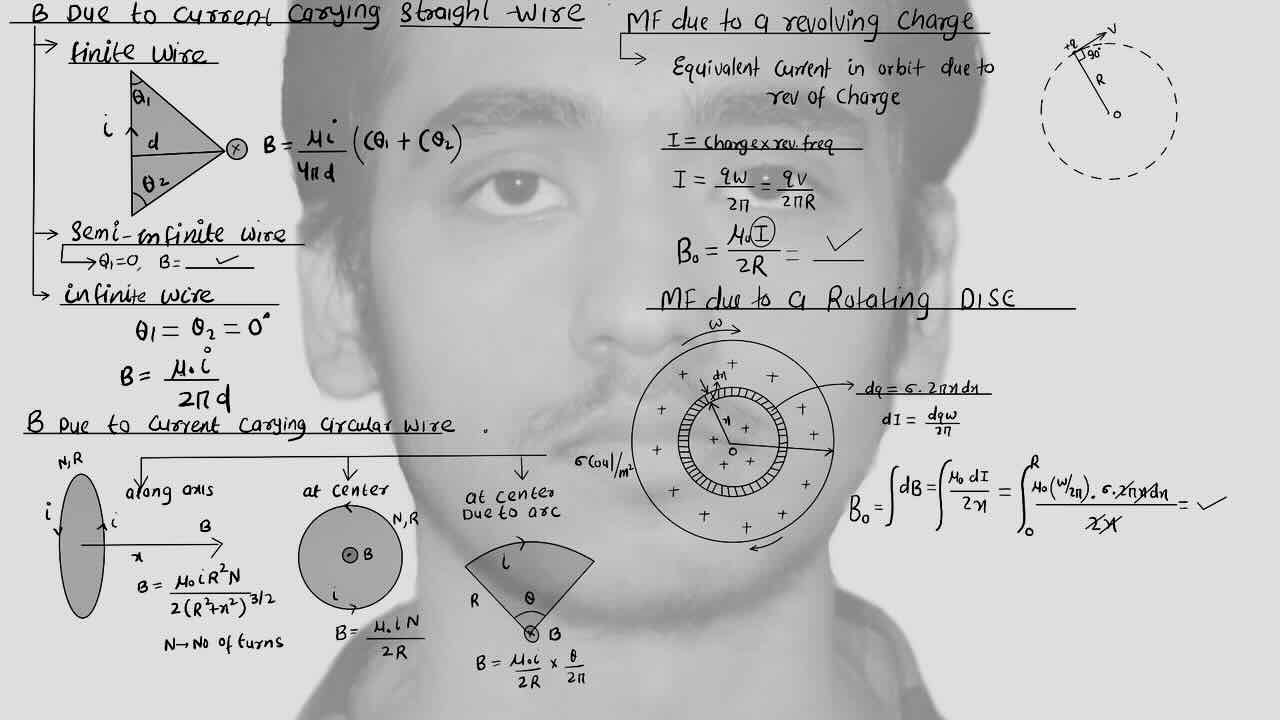 B Due to current Carying Straight Wire
finite wire
θ1
i
d
θ2
B = μi/4πd (Cθ1 + Cθ2)
Semi-infinite wire
θ1=0, B= ✓
infinite wire
θ1 = θ2 = 0°
B = μ.i/2πd
B Due to current carying circular wire .
N,R
i
i
along axis
B
x
B = μ0iR²N/2(R²+x²)^3/2
N→No of turns
at center
N,R
B
i
B = μ.iN/2R
at center
Due to arc
i
R
θ
B
B = μ0i/2R × θ/2π
MF due to a revolving Charge
Equivalent Current in orbit due to
rev of Charge
I = Charge×rev.freq
I = qw/2π = qv/2πR
B0 = μ0I/2R = ✓
+q
V
90°
R
O
MF due to a Rotating DISC
w
dx
x
O
σ Coul/m²
dq = σ.2πxdx
dI = dqw/2π
B0 = ∫dB = ∫μ0 dI/2x = ∫0^R μ0(w/2π).σ.2πxdx/2x = ✓